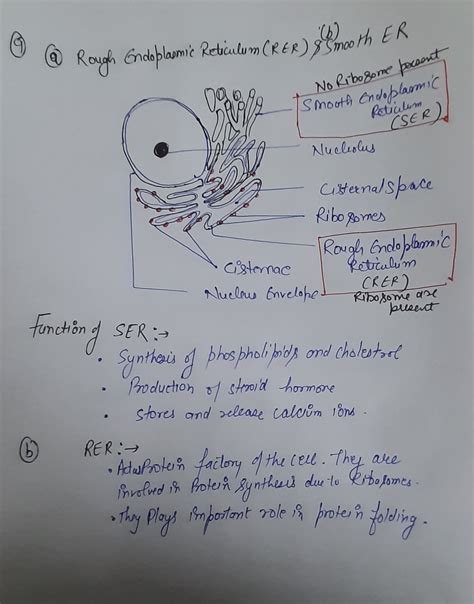 9
(a) Rough Endoplasmic Reticulum (RER) & (b) Smooth ER
No Ribosome present
Smooth Endoplasmic
Reticulum
(SER)
Nucleolus
Cisternal Space
Ribosomes
Rough Endoplasmic
Reticulum
(RER)
Ribosome are
present
Cisternae
Nucleus Envelope
Function of SER:→
• Synthesis of phospholipids and cholestrol
• Production of steroid hormone
• Stores and release calcium ions.
(b) RER:→
• Act as Protein factory of the cell. They are
involved in Protein synthesis due to Ribosomes.
• They Plays important role in protein folding.